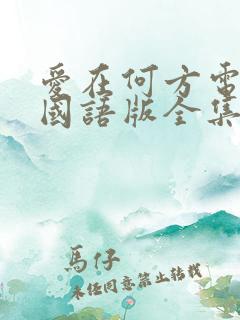 愛在何方電
國語版全集
馬仔
未經同意禁止轉載